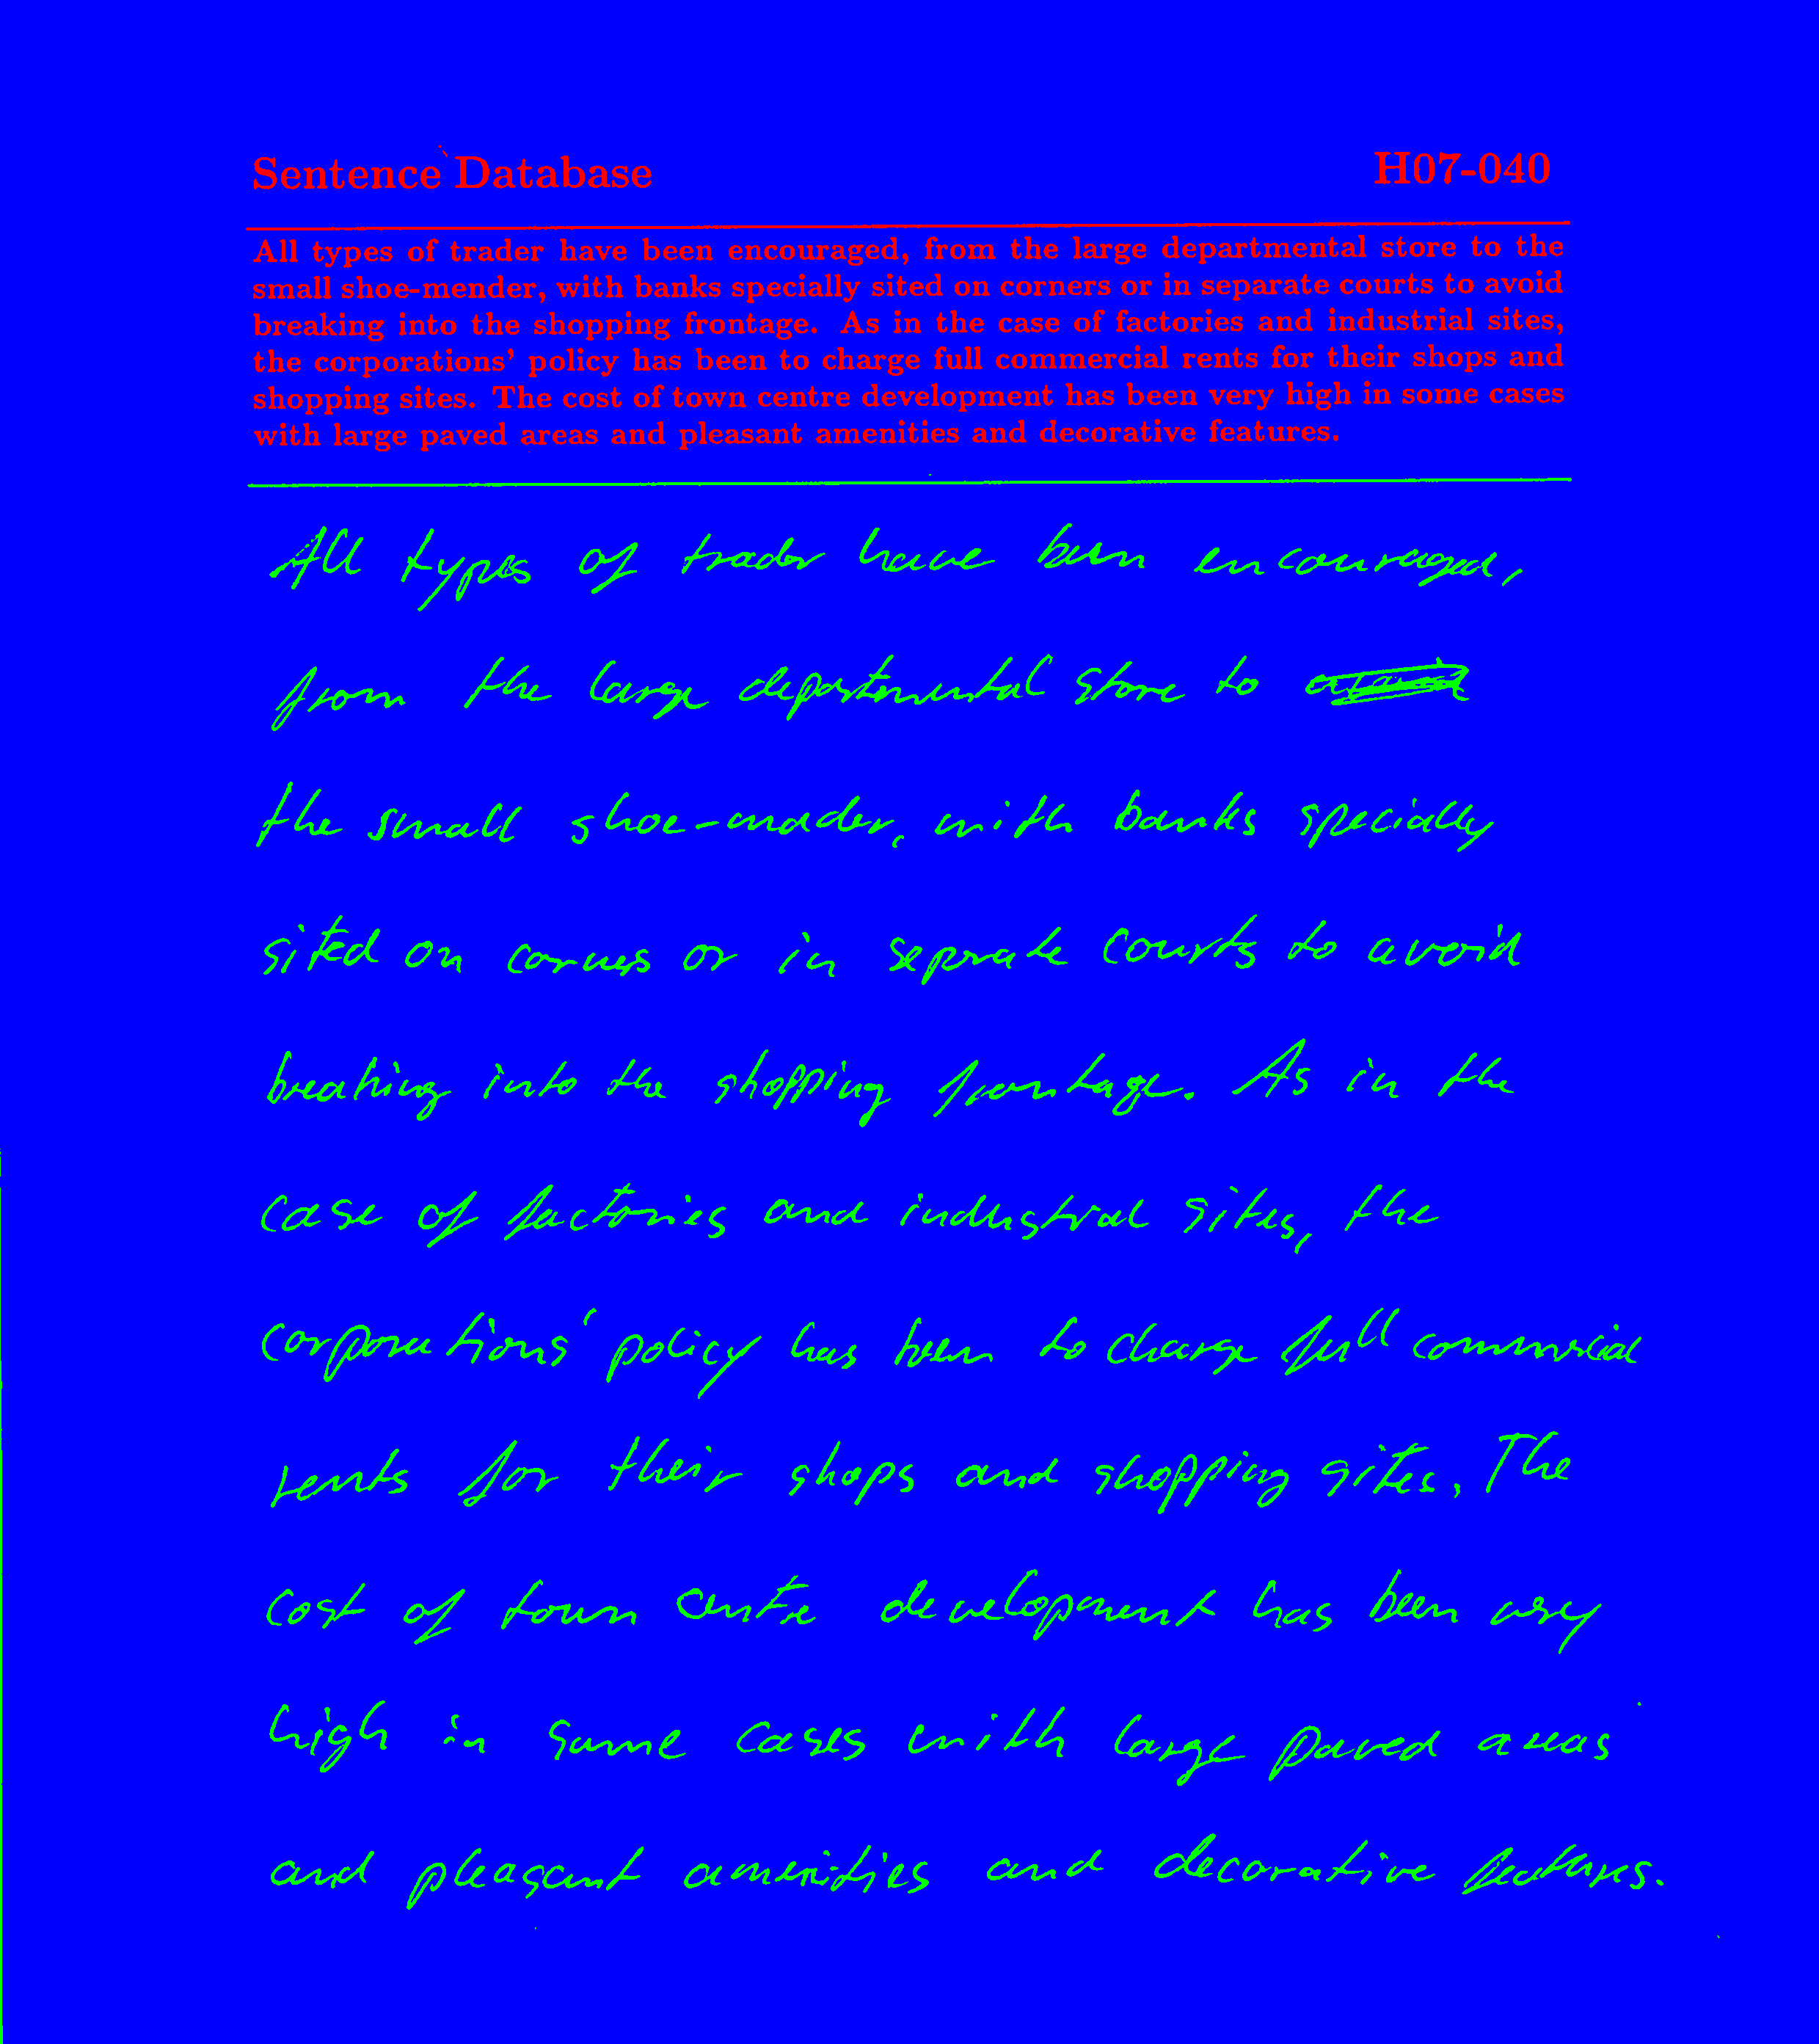 Sentence Database H07-040
All types of trader have been encouraged, from the large departmental store to the
small shoe-mender, with banks specially sited on corners or in separate courts to avoid
breaking into the shopping frontage. As in the case of factories and industrial sites,
the corporations' policy has been to charge full commercial rents for their shops and
shopping sites. The cost of town centre development has been very high in some cases
with large paved areas and pleasant amenities and decorative features.
All types of trader have been encouraged,
from the large departmental store to
the small shoe-mader, with banks specially
sited on corners or in seperate courts to avoid
breaking into the shopping frontage. As in the
case of factories and industrial sites, the
corporations' policy has been to charge full commercial
rents for their shops and shopping sites. The
cost of town centre development has been very
high in some cases with large paved areas
and pleasant amenities and decorative features.